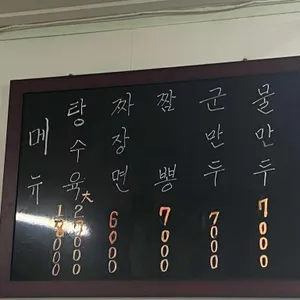 메뉴
탕수육
大
짜장면
6000
짬뽕
7000
군만두
7000
물만두
7000